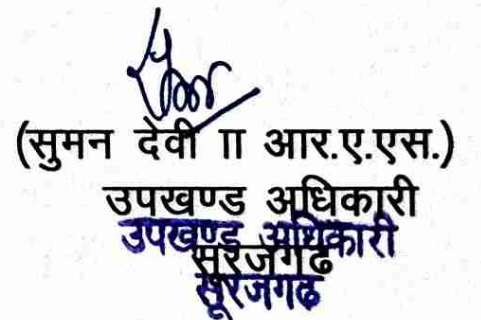 (सुमन देवी II आर.ए.एस.)
उपखण्ड अधिकारी
उपखण्ड अधिकारी
सूरजगढ
सूरजगढ